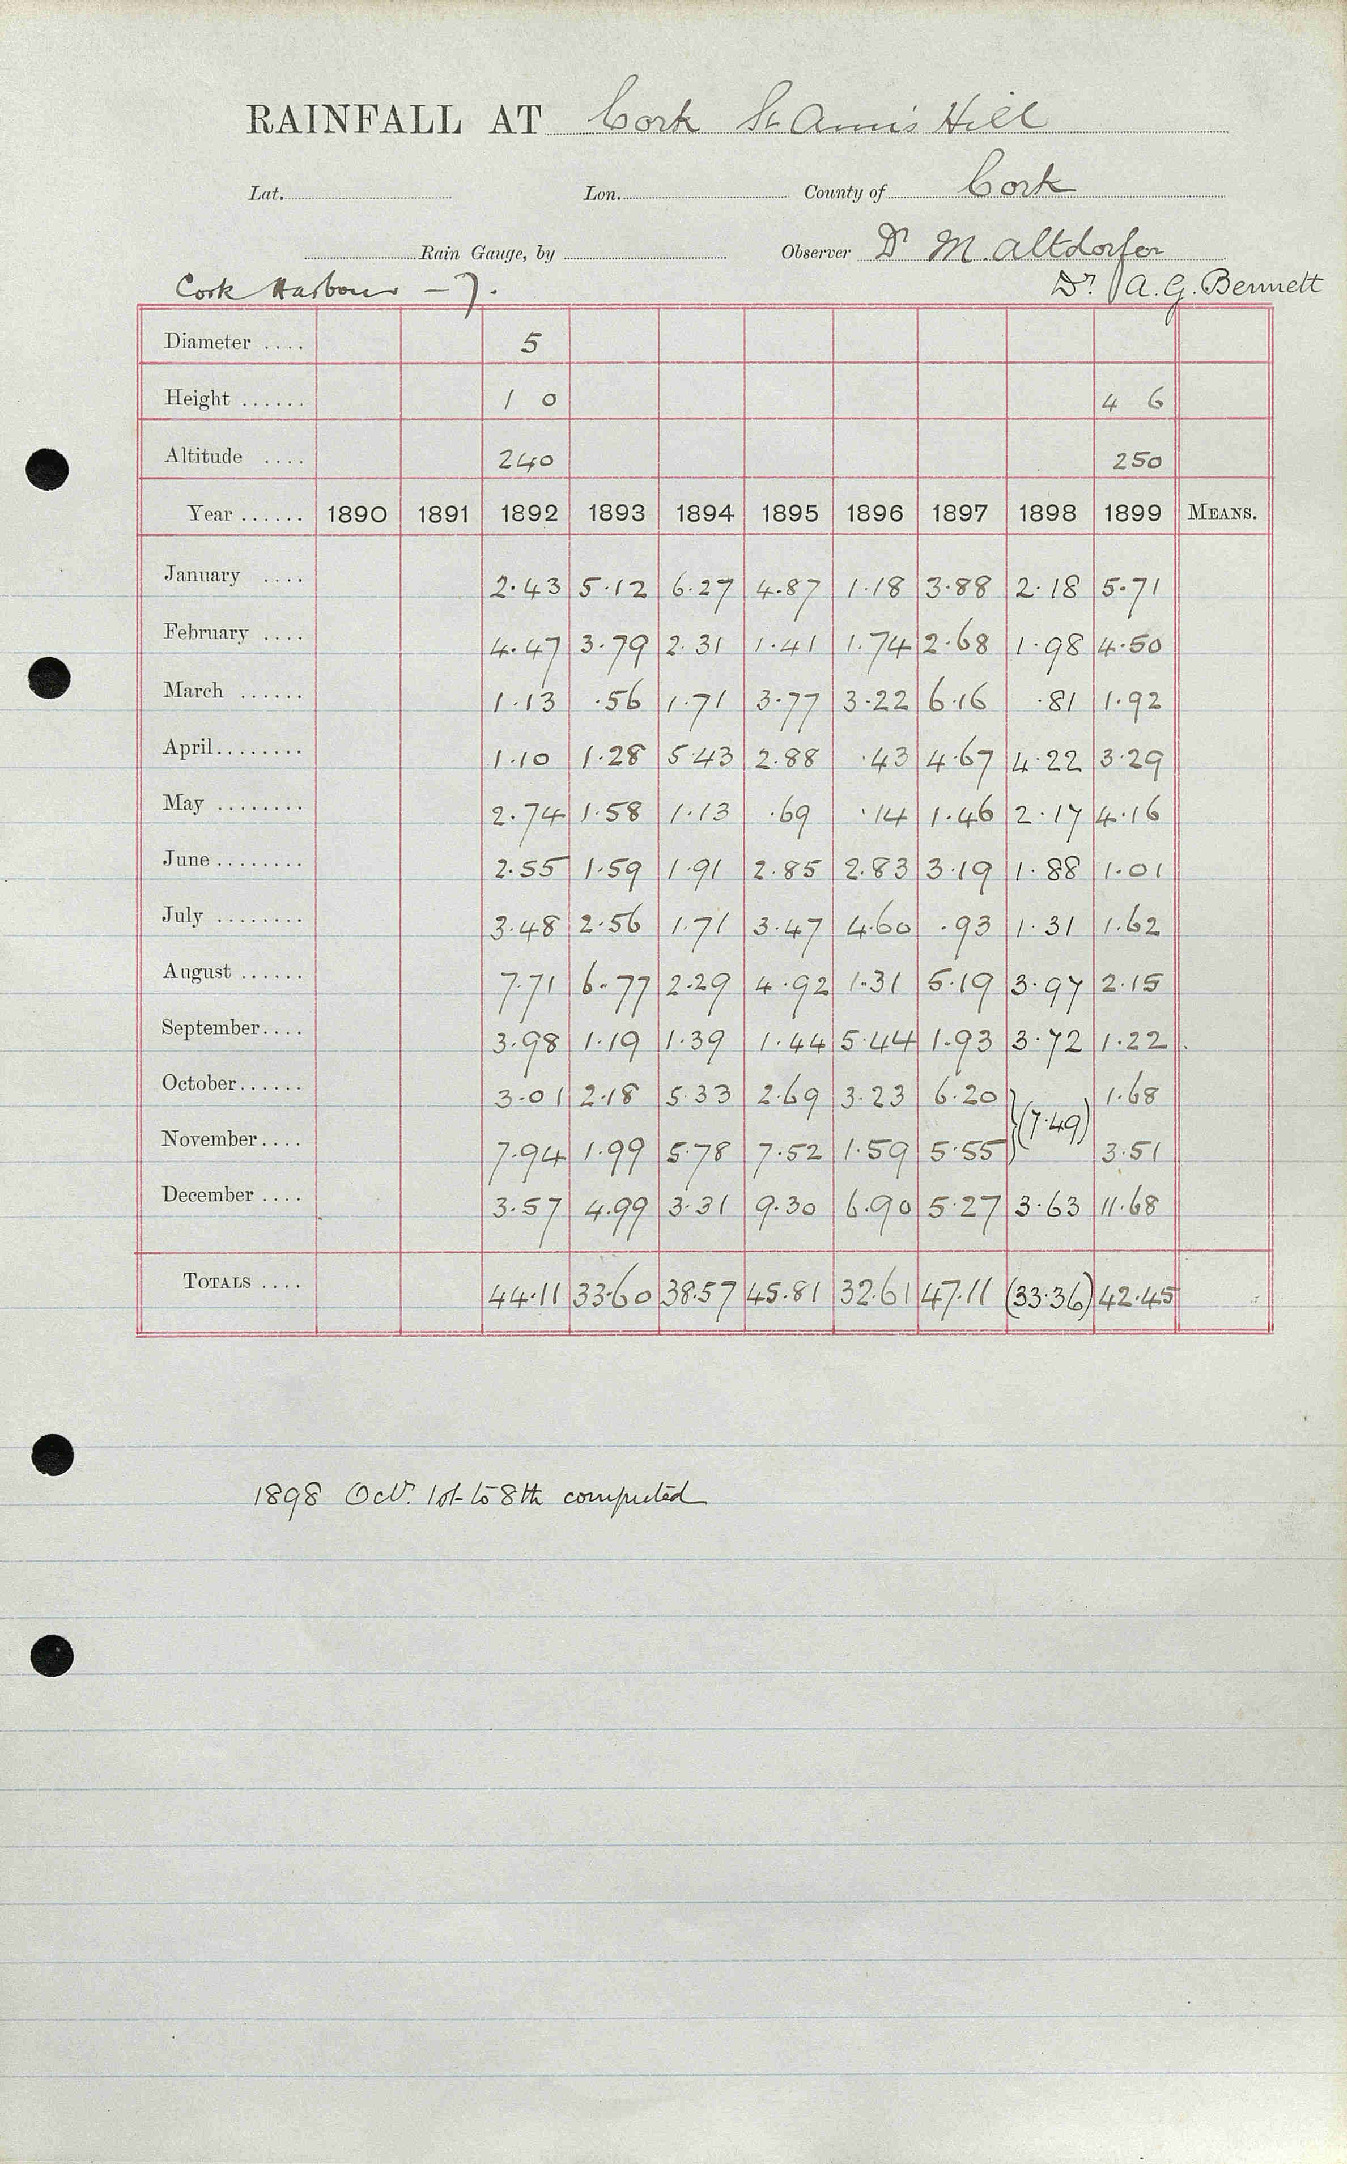 RAINFALL AT Cork St Ann's Hill
Lat. Lon. County of Cork
Rain Gauge, by Observer Dr M. Altdorfer
Cork Harbour - 7. Dr. A. G. Bennett
Diameter .... 5
Height ...... 1 0 4 6
Altitude .... 240 250
Year ...... 1890 1891 1892 1893 1894 1895 1896 1897 1898 1899 MEANS.
January .... 2.43 5.12 6.27 4.87 1.18 3.88 2.18 5.71
February .... 4.47 3.79 2.31 1.41 1.74 2.68 1.98 4.50
March ...... 1.13 .56 1.71 3.77 3.22 6.16 .81 1.92
April........ 1.10 1.28 5.43 2.88 .43 4.67 4.22 3.29
May ........ 2.74 1.58 1.13 .69 .14 1.46 2.17 4.16
June ........ 2.55 1.59 1.91 2.85 2.83 3.19 1.88 1.01
July ........ 3.48 2.56 1.71 3.47 4.60 .93 1.31 1.62
August ...... 7.71 6.77 2.29 4.92 1.31 5.19 3.97 2.15
September.... 3.98 1.19 1.39 1.44 5.44 1.93 3.72 1.22
October...... 3.01 2.18 5.33 2.69 3.23 6.20 } (7.49) 1.68
November.... 7.94 1.99 5.78 7.52 1.59 5.55 3.51
December .... 3.57 4.99 3.31 9.30 6.90 5.27 3.63 11.68
TOTALS .... 44.11 33.60 38.57 45.81 32.61 47.11 (33.36) 42.45
1898 Octr. 1st to 8th computed